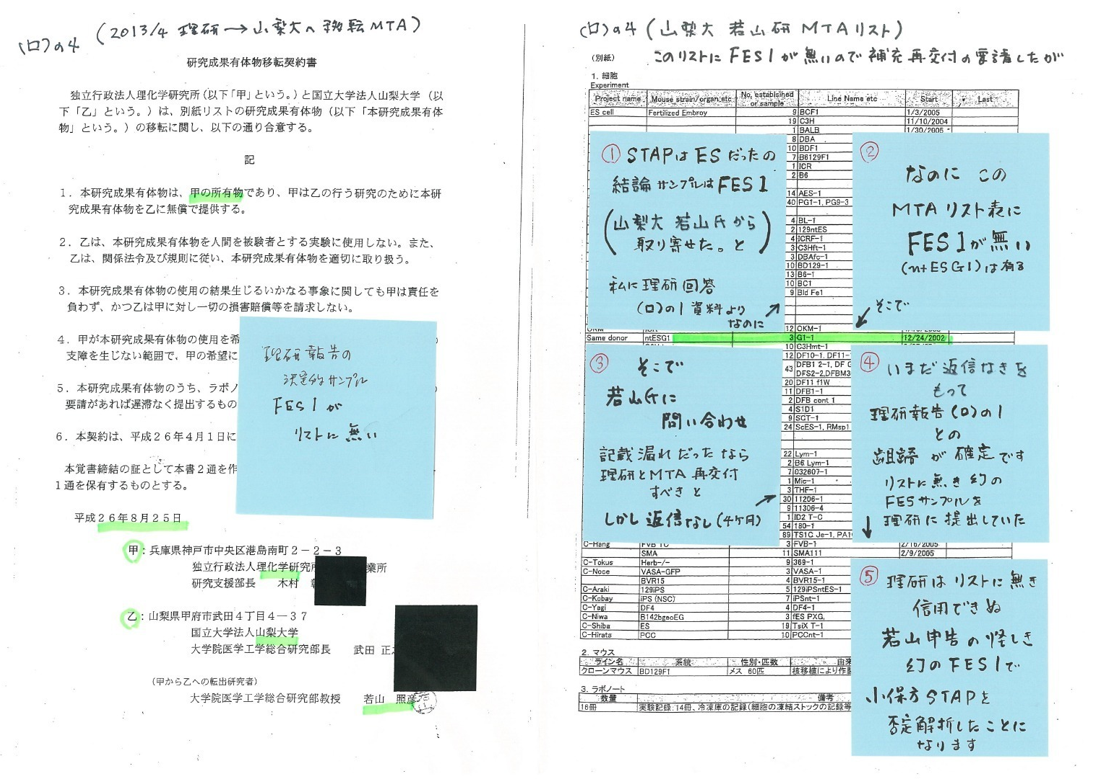 (ロ)の4 (2013/4 理研→山梨大へ移転MTA)
研究成果有体物移転契約書
独立行政法人理化学研究所(以下「甲」という。)と国立大学法人山梨大学(以
下「乙」という。)は、別紙リストの研究成果有体物(以下「本研究成果有体
物」という。)の移転に関し、以下の通り合意する。
記
1.本研究成果有体物は、甲の所有物であり、甲は乙の行う研究のために本研
究成果有体物を乙に無償で提供する。
2.乙は、本研究成果有体物を人間を被験者とする実験に使用しない。また、
乙は、関係法令及び規則に従い、本研究成果有体物を適切に取り扱う。
3.本研究成果有体物の使用の結果生じるいかなる事象に関しても甲は責任を
負わず、かつ乙は甲に対し一切の損害賠償等を請求しない。
4.甲が本研究成果有体物の使用を希
支障を生じない範囲で、甲の希望に
5.本研究成果有体物のうち、ラボノ
要請があれば遅滞なく提出するもの
6.本契約は、平成26年4月1日に
本覚書締結の証として本書2通を作
1通を保有するものとする。
理研報告の
決定的サンプル
FES1が
リストに無い
平成26年8月25日
甲:兵庫県神戸市中央区港島南町2-2-3
独立行政法人理化学研究所 業所
研究支援部長 木村
乙:山梨県甲府市武田4丁目4-37
国立大学法人山梨大学
大学院医学工学総合研究部長 武田 正
(甲から乙への転出研究者)
大学院医学工学総合研究部教授 若山 照彦
(ロ)の4 (山梨大 若山研 MTAリスト)
(別紙) このリストにFES1が無いので補充再交付の要請したが
1.細胞
Experiment
Project name Mouse strain/organ,etc No, established or sample Line Name etc Start Last
ES cell Fertilized Embroy 9 BCF1 1/3/2005
19 C3H 11/10/2004
1 BALB 1/30/2005
8 DBA
10 BDF1
7 B6129F1
1 ICR
2 B6
14 AES-1
40 PG1-1, PG9-3
4 BL-1
2 129ntES
4 ICRF-1
3 C3Hft-1
3 DBAfc-1
10 BD129-1
13 B6-1
10 BC1
9 Bld Fe1
12 OKM-1
Same donor ntESG1 3 G1-1 12/24/2002
10 C3Hmt-1
12 DF10-1, DF11-
43 DFB1 2-1, DF
DFS2-2,DFBM3
20 DF11 f1W
11 DFB1-1
2 DFB cont 1
4 S1D1
9 SCT-1
24 ScES-1, RMsp1
22 Lym-1
2 B6 Lym-1
7 032607-1
1 Mic-1
3 THF-1
30 11206-1
9 11306-4
1 ID2 T-C
54 180-1
89 TS1C Je-1, PA1
C-Hang FVB TC 3 FVB-1 2/16/2005
SMA 11 SMA111 2/9/2005
C-Tokus Herb-/- 9 369-1
C-Noce VASA-GFP 3 VASA-1
BVR15 4 BVR15-1
C-Araki 129iPS 5 129iPSntES-1
C-Kobay iPS (NSC) 7 iPSnt-1
C-Yagi DF4 4 DF4-1
C-Niwa B142bgeoEG 3 fES PXG,
C-Shiba ES 19 TsiX T-1
C-Hirata PCC 10 PCCnt-1
2.マウス
ライン名 系統 性別・匹数 由来
クローンマウス BD129F1 メス 60匹 核移植により作
3.ラボノート
数量 備考
16冊 実験記録:14冊、冷凍庫の記録(細胞の凍結ストックの記録等
① STAPはESだったの
結論サンプルはFES1
(山梨大 若山氏から
取り寄せた。と)
私に理研回答
(ロ)の1 資料より
なのに
② なのに この
MTAリスト表に
FES1が無い
(ntESG1)は有る
そこで
③ そこで
若山氏に
問い合わせ
記載漏れだったなら
理研とMTA再交付
すべきと
しかし返信なし(4ヶ月)
④ いまだ返信なきを
もって
理研報告(ロ)の1
との
齟齬が確定です
リストに無き幻の
FESサンプルを
理研に提出していた
⑤ 理研はリストに無き
信用できぬ
若山申告の怪しき
幻のFES1で
小保方STAPを
否定解析したことに
なります